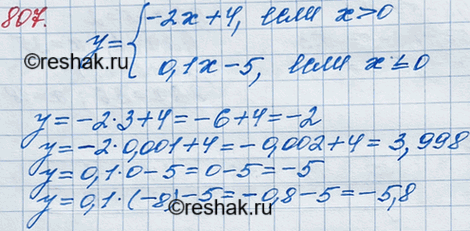 807.
y = { -2x+4, если x>0
0,1x-5, если x≤0
©reshak.ru
©reshak.ru
y = -2·3+4 = -6+4 = -2
y = -2·0,001+4 = -0,002+4 = 3,998
y = 0,1·0-5 = 0-5 = -5
y = 0,1·(-8)-5 = -0,8-5 = -5,8
©reshak.ru
©reshak.ru